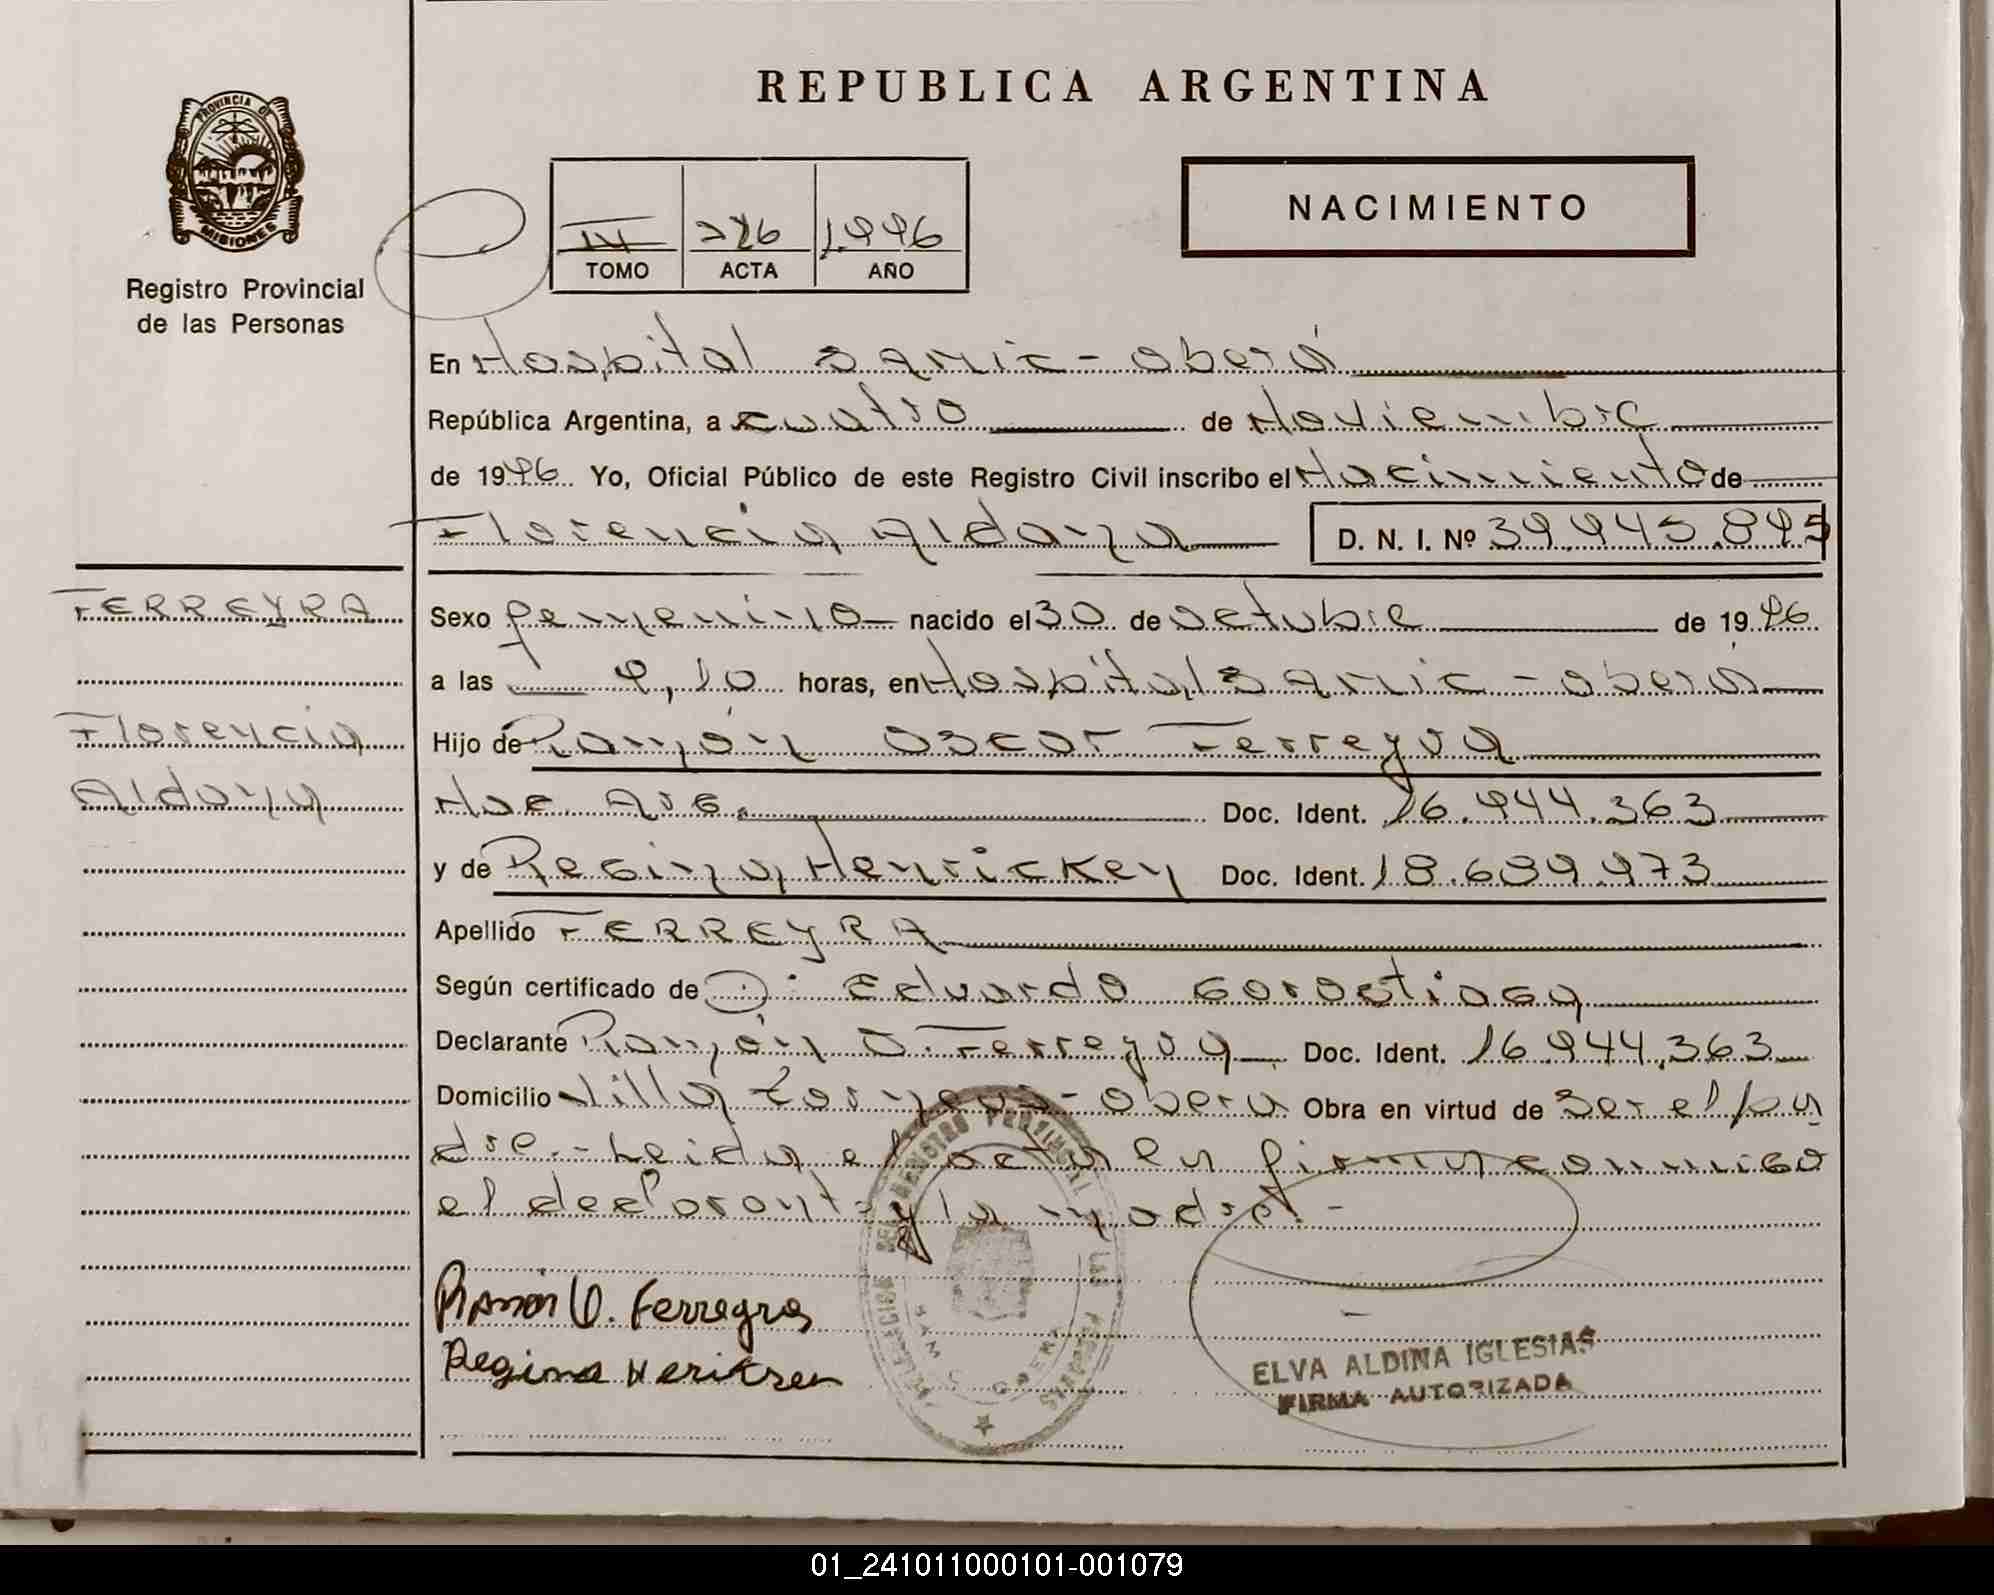 REPUBLICA ARGENTINA
PROVINCIA DE
MISIONES
Registro Provincial
de las Personas
NACIMIENTO
IV 726 1.996
TOMO ACTA AÑO
En Hospital SAMIC - Oberá
República Argentina, a cuatro de Noviembre
de 1996 Yo, Oficial Público de este Registro Civil inscribo el Nacimiento de
Florencia Aldana D. N. I. Nº 39.945.895
FERREYRA
Sexo femenino nacido el 30 de octubre de 1996
a las 9,10 horas, en Hospital SAMIC - Oberá
Florencia
Aldana
Hijo de Ramón Oscar Ferreyra
Nac. Arg. Doc. Ident. 16.944.363
y de Regina Henricken Doc. Ident. 18.689.973
Apellido FERREYRA
Según certificado de D: Eduardo Gorostiaga
Declarante Ramón O. Ferreyra Doc. Ident. 16.944.363
Domicilio Villa - Oberá Obra en virtud de ser el pa
dre.- Leida el acta la firma conmigo
el declarante y la madre.-
Ramón O. Ferreyra
Regina Heriksen
DELEGACION DEL REGISTRO PROVINCIAL DE LAS PERSONAS
OBERA
ELVA ALDINA IGLESIAS
FIRMA AUTORIZADA
01_241011000101-001079